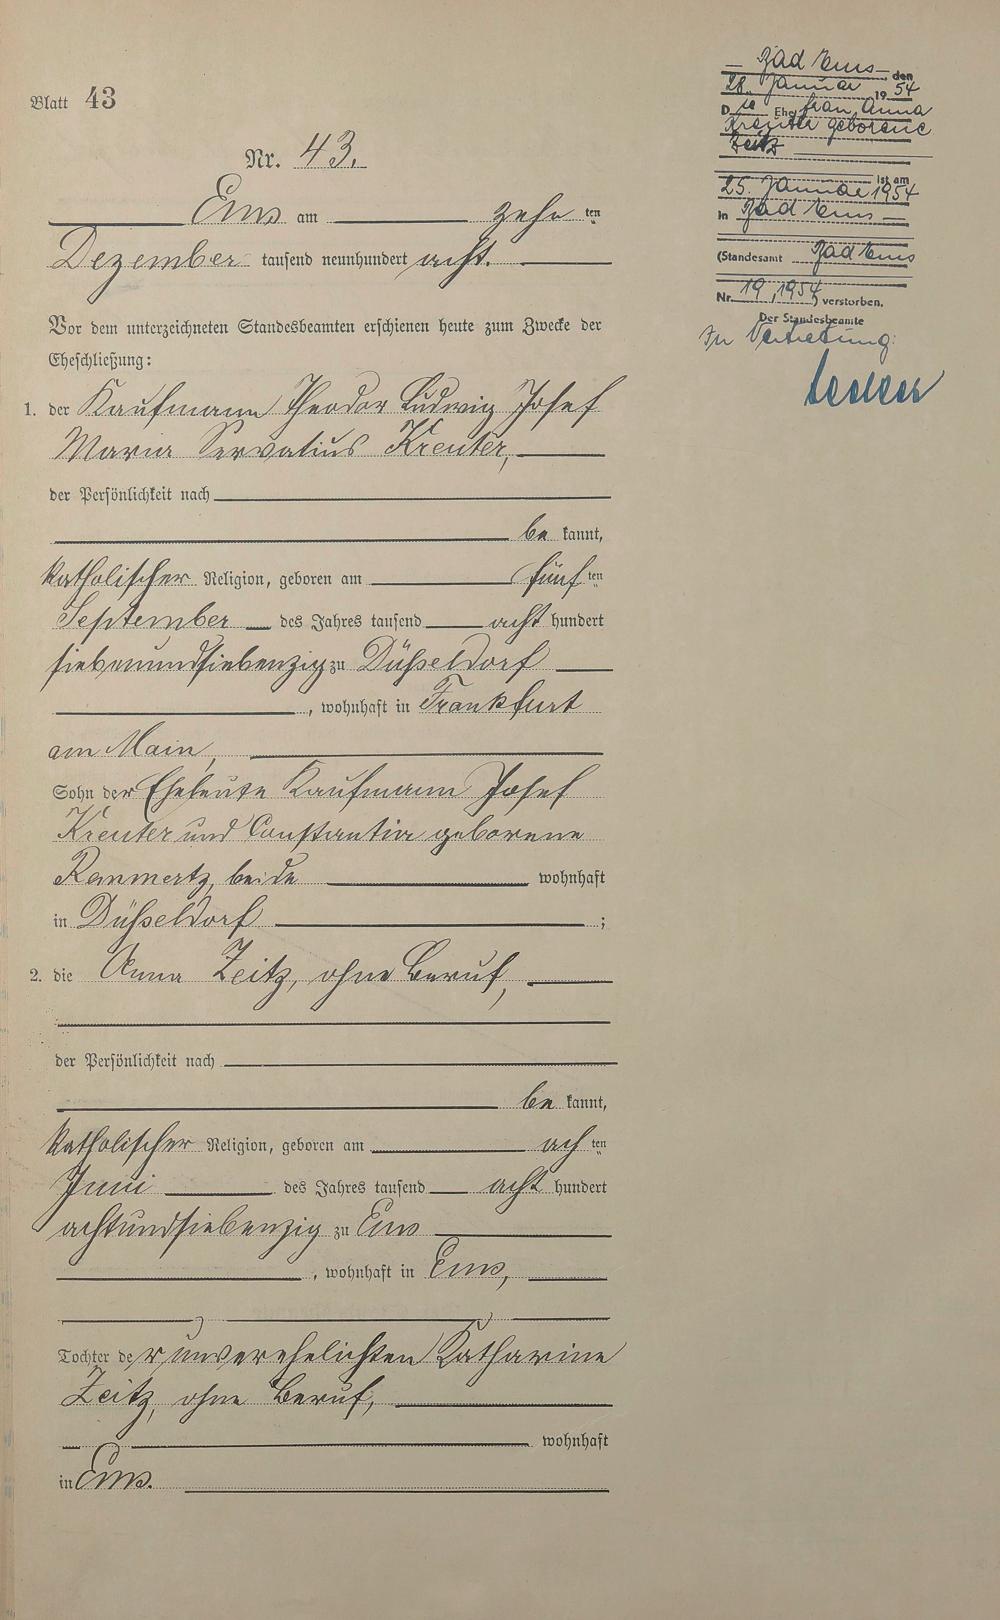 Blatt 43
Nr. 43.
Ems am zehn ten
Dezember tausend neunhundert acht.
Vor dem unterzeichneten Standesbeamten erschienen heute zum Zwecke der
Eheschließung:
1. der Kaufmann Theodor Ludwig Josef
Maria Servatius Kreuter,
der Persönlichkeit nach
be kannt,
katholischer Religion, geboren am fünf ten
September des Jahres tausend acht hundert
siebenundsiebenzig zu Düsseldorf
, wohnhaft in Frankfurt
am Main,
Sohn der Eheleute Kaufmann Josef
Kreuter und Constantia geborene
Rammertz, beide wohnhaft
in Düsseldorf ;
2. die Anna Zeitz, ohne Beruf,
der Persönlichkeit nach
be kannt,
katholischer Religion, geboren am ach ten
Juni des Jahres tausend acht hundert
achtundsiebenzig zu Ems
, wohnhaft in Ems,
Tochter der unverehelichten Katharine
Zeitz, ohne Beruf,
wohnhaft
in Ems.
Bad Ems, den
28. Januar 1954
Die Ehefrau Anna
Kreuter geborene
Zeitz
ist am
25. Januar 1954
in Bad Ems
(Standesamt Bad Ems
Nr. 19/1954) verstorben.
Der Standesbeamte
In Vertretung: